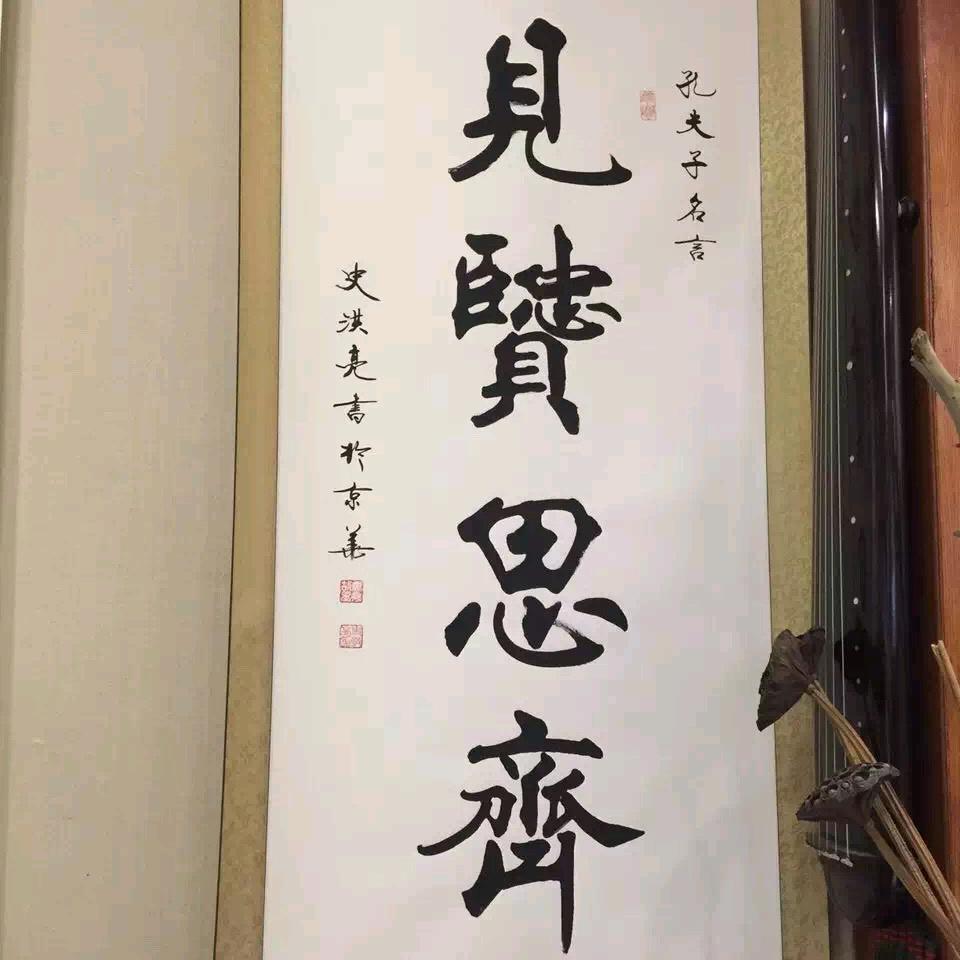 孔夫子名言
見賢思齊
史洪亮書於京華